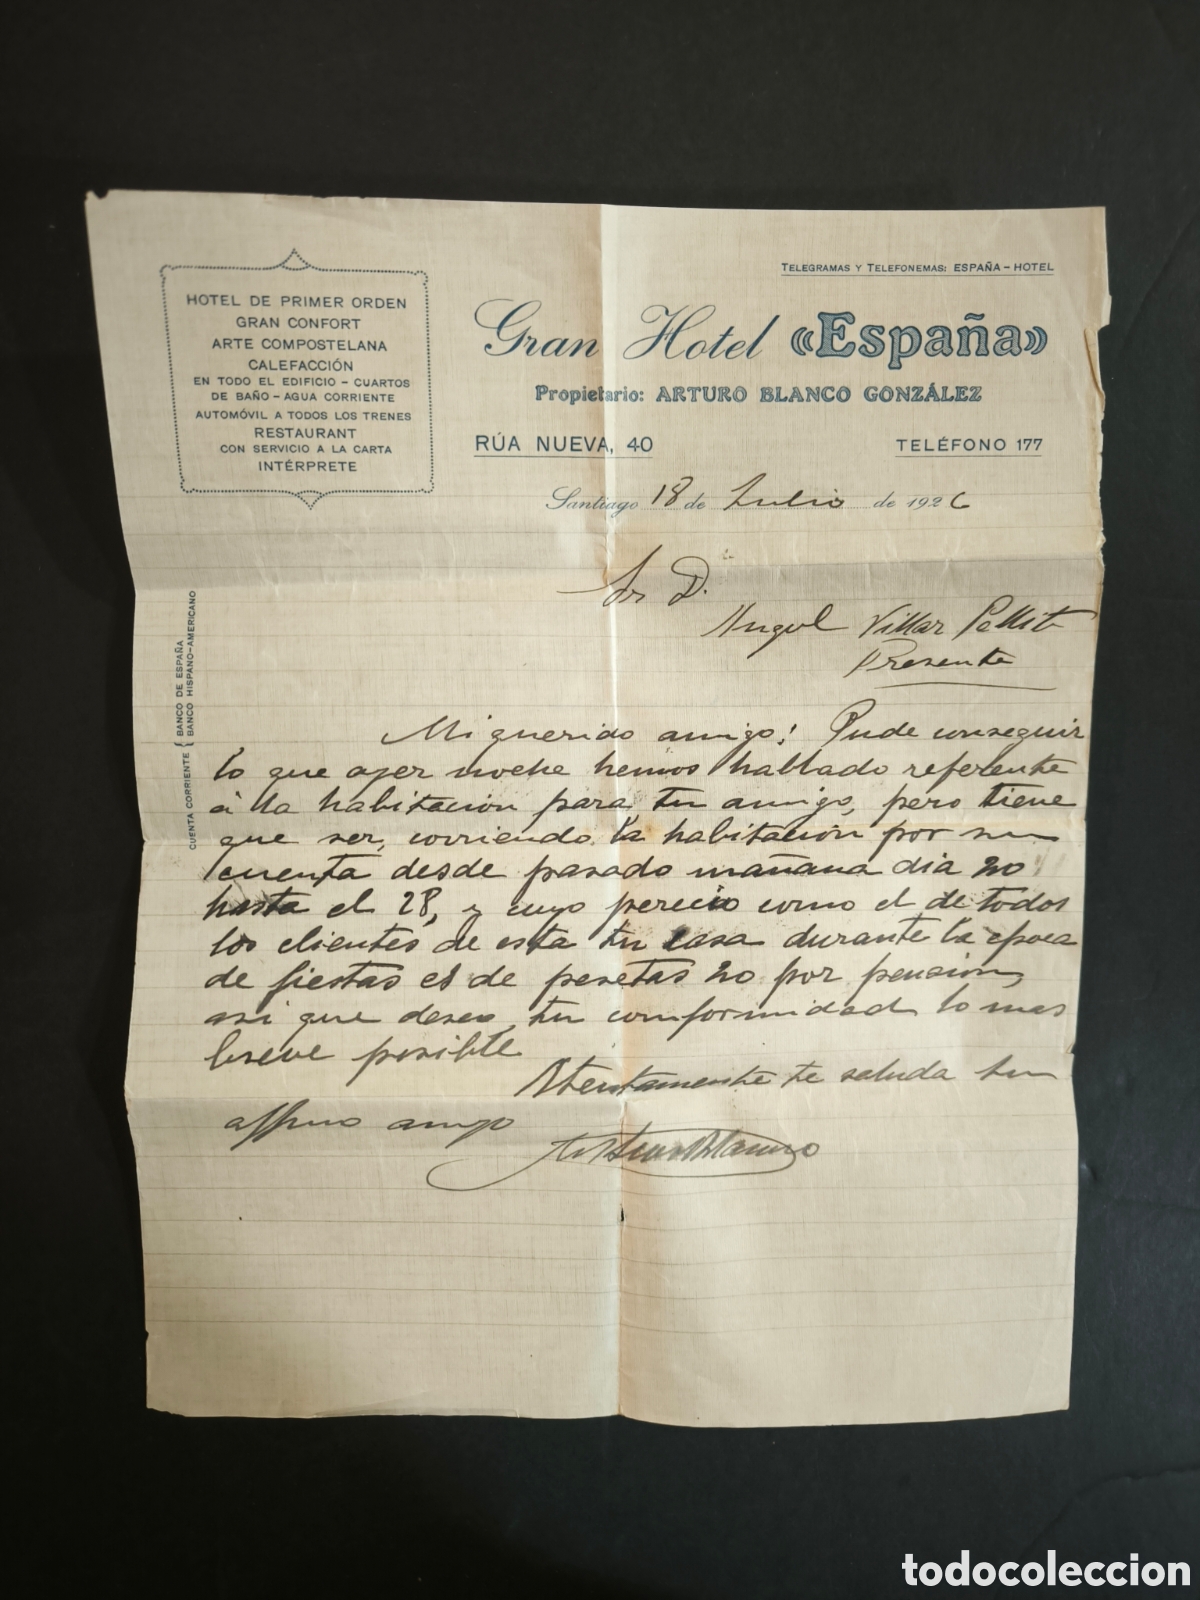 TELEGRAMAS Y TELEFONEMAS: ESPAÑA-HOTEL
HOTEL DE PRIMER ORDEN
GRAN CONFORT
ARTE COMPOSTELANA
CALEFACCIÓN
EN TODO EL EDIFICIO - CUARTOS
DE BAÑO - AGUA CORRIENTE
AUTOMÓVIL A TODOS LOS TRENES
RESTAURANT
CON SERVICIO A LA CARTA
INTÉRPRETE
Gran Hotel «España»
Propietario: ARTURO BLANCO GONZÁLEZ
RÚA NUEVA, 40
TELÉFONO 177
Santiago 18 de Julio de 1926
CUENTA CORRIENTE { BANCO DE ESPAÑA
BANCO HISPANO-AMERICANO
Sr D.
Angel Villar Pellit
Presente
Mi querido amigo: Pude conseguir
lo que ayer noche hemos hablado referente
á la habitacion para tu amigo, pero tiene
que ser, corriendo la habitacion por su
cuenta desde pasado mañana dia 20
hasta el 28, y cuyo perecio como el de todos
los clientes de esta tu casa durante la epoca
de fiestas es de pesetas 20 por pension,
asi que deseo tu conformidad lo mas
breve posible
Atentamente te saluda tu
affmo amigo
Arturo Blanco
todocoleccion